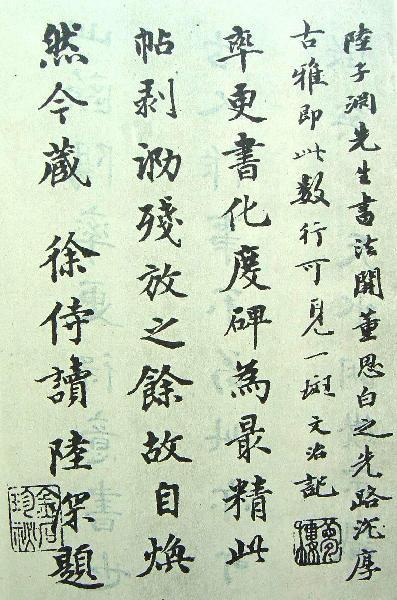 陸子渊先生書法開董思白之先路沈厚
古雅即此数行可見一斑文治記
夢樓
率更書化度碑為最精此
帖剥泐殘放之餘故自煥
然今藏 徐侍讀陸深題
金石